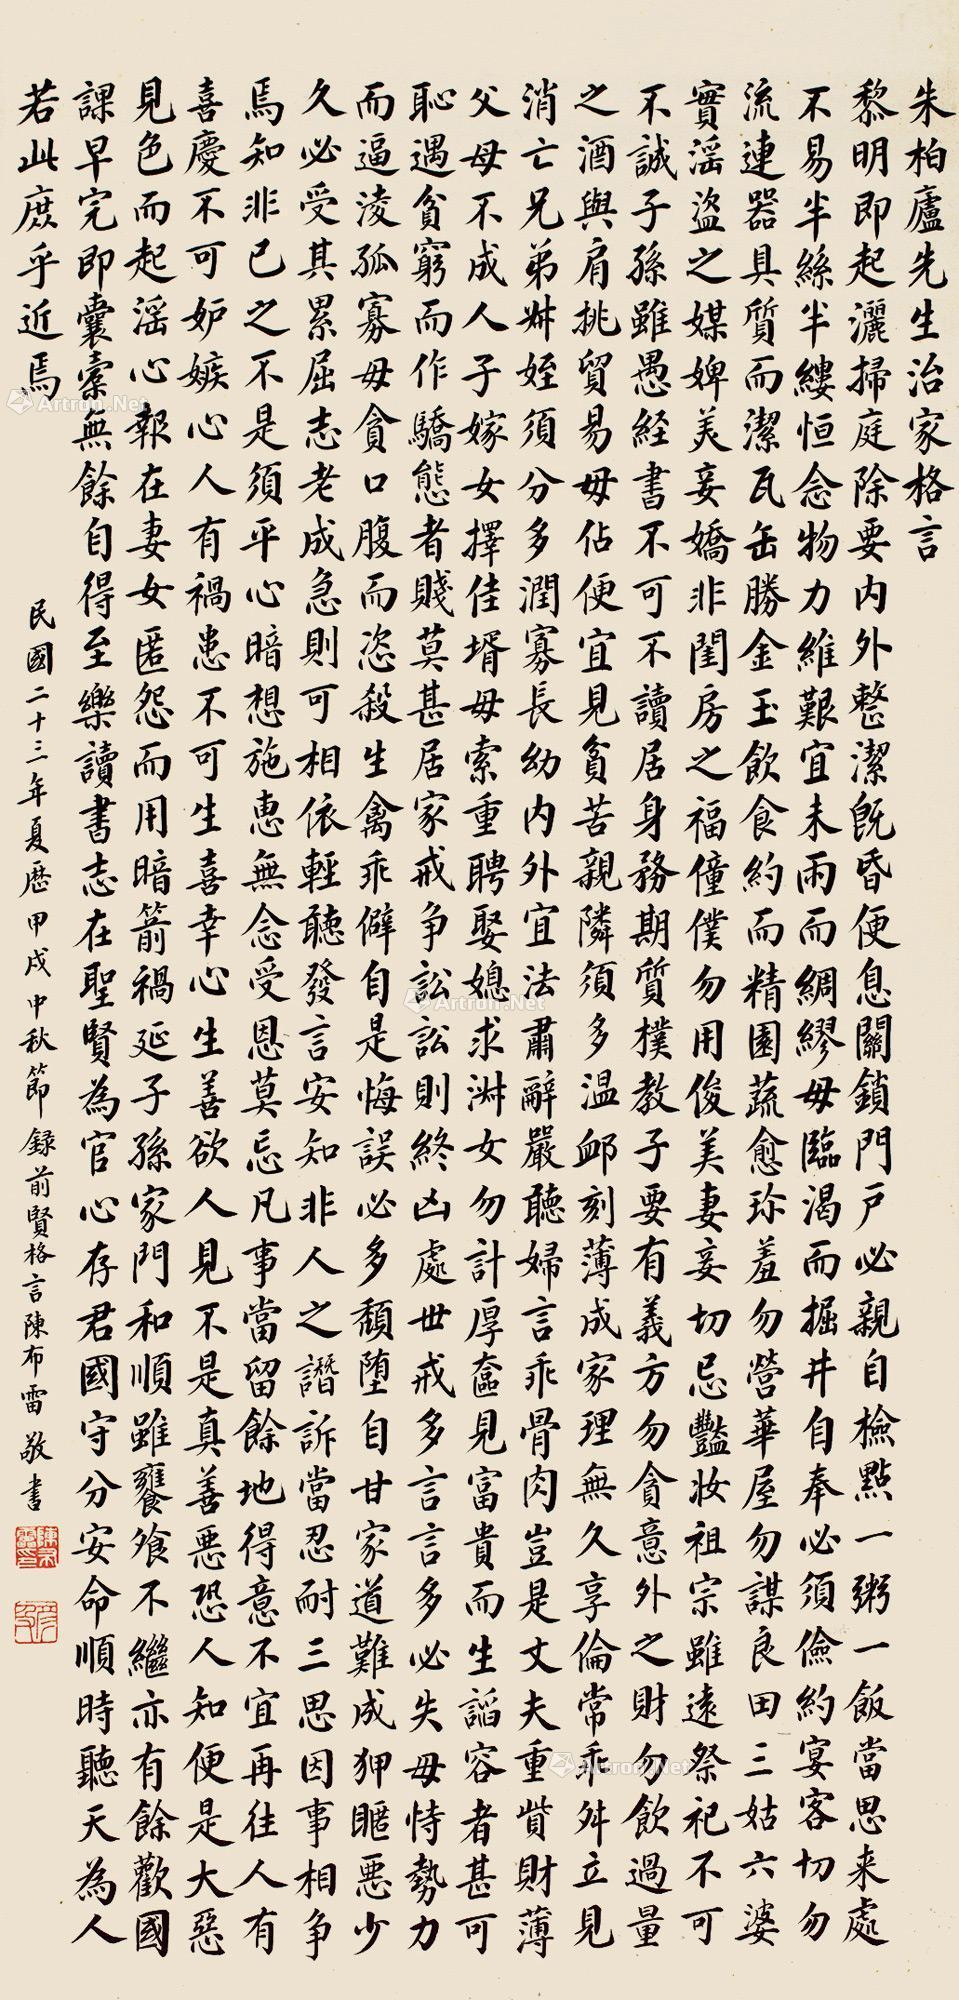 朱柏廬先生治家格言
黎明即起灑掃庭除要內外整潔既昏便息關鎖門戶必親自檢點一粥一飯當思来處
不易半絲半縷恒念物力維艱宜未雨而綢繆毋臨渴而掘井自奉必須儉約宴客切勿
流連器具質而潔瓦缶勝金玉飲食約而精園蔬愈珍羞勿營華屋勿謀良田三姑六婆
實淫盜之媒婢美妾嬌非閨房之福僮僕勿用俊美妻妾切忌豔妝祖宗雖遠祭祀不可
不誠子孫雖愚経書不可不讀居身務期質樸教子要有義方勿貪意外之財勿飲過量
之酒與肩挑貿易毋佔便宜見貧苦親隣須多温卹刻薄成家理無久享倫常乖舛立見
消亡兄弟叔姪須分多潤寡長幼內外宜法肅辭嚴聽婦言乖骨肉豈是丈夫重貲財薄
父母不成人子嫁女擇佳壻毋索重聘娶媳求淑女勿計厚奩見富貴而生謟容者甚可
恥遇貧窮而作驕態者賤莫甚居家戒争訟訟則終凶處世戒多言言多必失毋恃勢力
而逼淩孤寡毋貪口腹而恣殺生禽乖僻自是悔誤必多頹堕自甘家道難成狎暱惡少
久必受其累屈志老成急則可相依輕聽發言安知非人之譖訴當忍耐三思因事相争
焉知非己之不是須平心暗想施惠無念受恩莫忘凡事當留餘地得意不宜再往人有
喜慶不可妒嫉心人有禍患不可生喜幸心生善欲人見不是真善悪恐人知便是大惡
見色而起淫心報在妻女匿怨而用暗箭禍延子孫家門和順雖饔飧不繼亦有餘歡國
課早完即囊橐無餘自得至樂讀書志在聖賢為官心存君國守分安命順時聽天為人
若此庶乎近焉
民國二十三年夏歷甲戌中秋節録前賢格言陳布雷敬書
Artron.Net
Artron.Net
Artron.Net